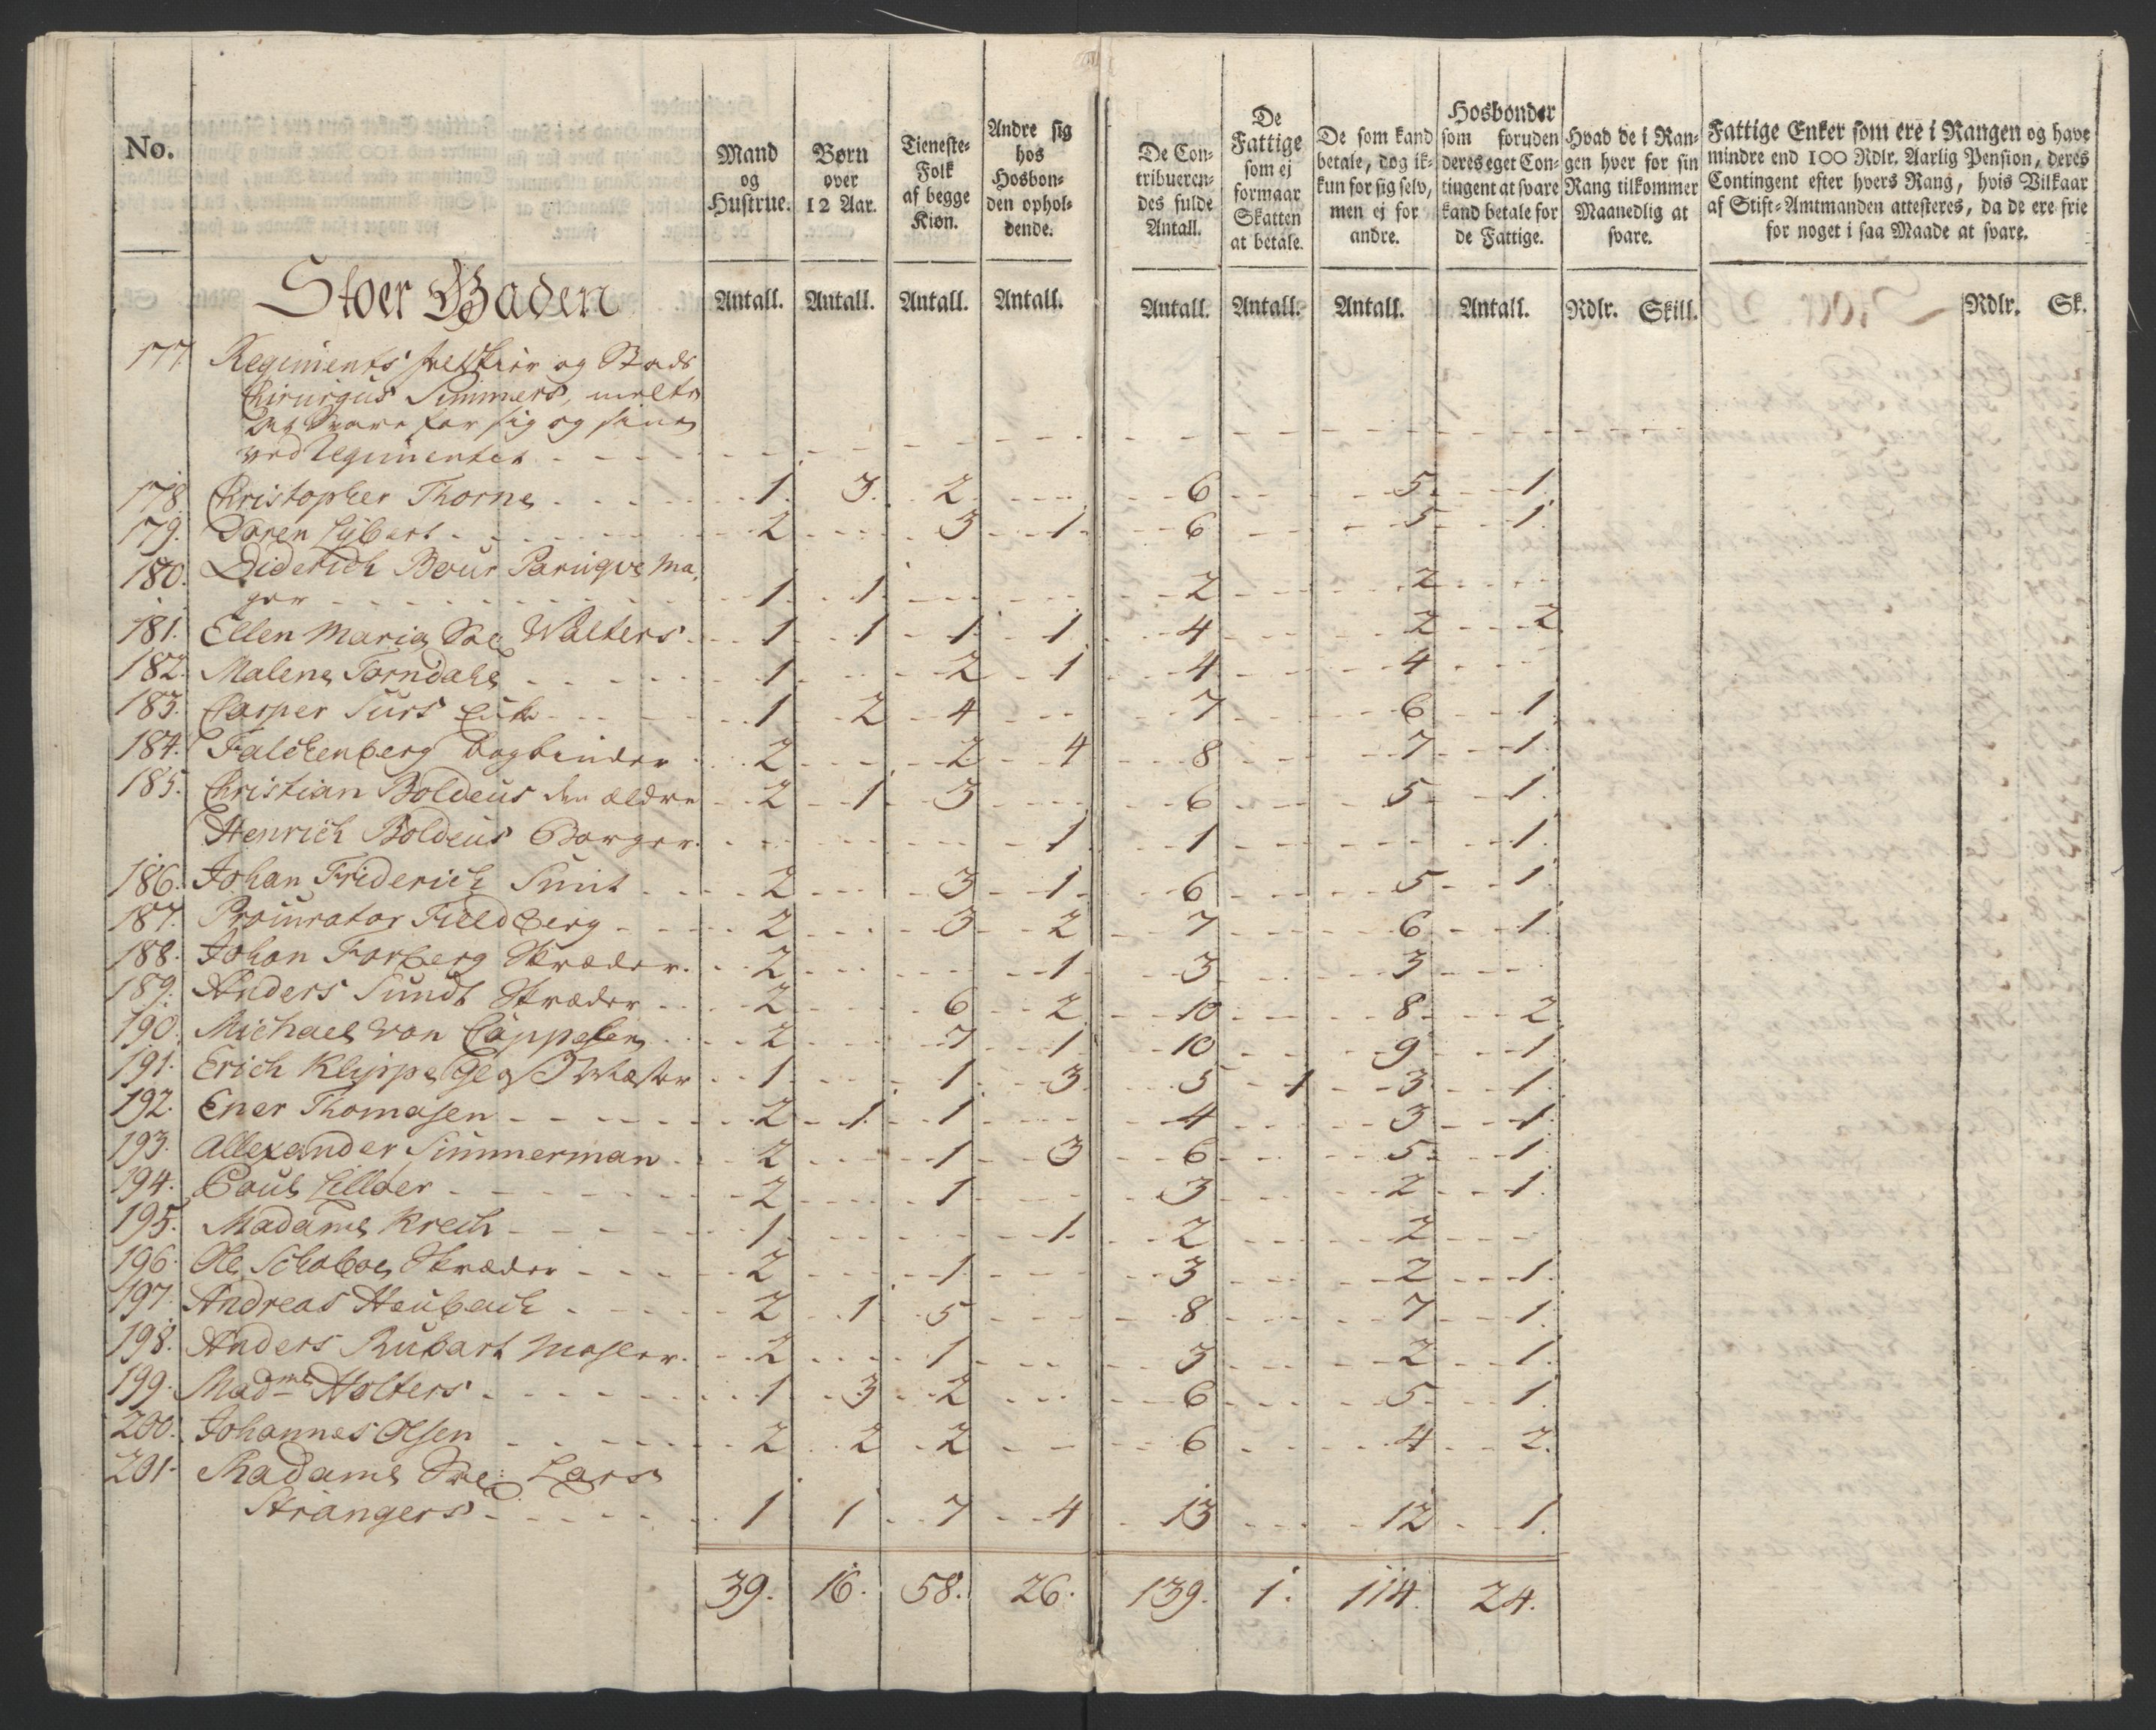 No.
Mand og Hustrue.
Børn over 12 Aar.
Tieneste-Folk af begge Kiøn.
Andre sig hos Hosbonden opholdende.
De Contribuerendes fulde Antall.
De Fattige som ej formaar Skatten at betale.
De som kand betale, dog ikkun for sig selv, men ej for andre.
Hosbonder som foruden deres eget Contingent at svare kand betale for de Fattige.
Hvad de i Rangen hver for sin Rang tilkommer Maanedlig at svare.
Fattige Enker som ere i Rangen og have mindre end 100 Rdlr. Aarlig Pension, deres Contingent efter hvers Rang, hvis Vilkaar af Stift-Amtmanden attesteres, da de ere frie for noget i saa Maade at svare.
Stoer Gaden Antall. Antall. Antall. Antall. Antall. Antall. Antall. Antall. Rdlr. Skill. Rdlr. Sk.
177. Regiments feltskier og Stads
Chirurgus Simmers,
svare for sig og sine
ved Regimentet - - -
178. Christopher Thorne - - 1. 3. 2. - - 6 - - 5. - 1.
179. Søren Lybert - - 2 - - 3 - 1. - 6 - - 5 - 1.
180. Diderich Bour Paruqve ma,
ger - - 1. 1. - - 2 - - 2 - -
181. Ellen Maria Sal Walters - 1 1 1. 1 4 - 2 - 2.
182. Malene Torndahl - - 1 - 2 1 4 - 4 - -
183. Casper Surs Enke - - 1 2 4 - 7 - 6 - 1.
184. Falchenberg bogbinder - 2 - 2 4 8 - 7 - 1.
185. Christian Boldeus den ældre - 2 - 1 - 3 - 6 - 5 - 1.
Henrich Boldeus Borger - - - - 1. - 1 - - - 1.
186. Johan Friderich Smit - 2 - 3 - 1 - 6 - 5 - 1.
187. Procurator Fieldberg - 2 - 3 - 2 - 7 - 6 - 1.
188. Johan Forberg Skræder. - 2 - - 1. - 3 - 3 - -
189. Anders Sundt Skræder - 2 - 6 - 2 - 10 - 8 - 2.
190. Michael von Cappelen - 2 - 7 - 1 - 10 - 9 - 1.
191. Erich Klyppe Mæster - 1. - 1. - 3. - 5 - 1 - 3. - 1.
192. Ener Thomasen - - 2 - 1. - 1 - 4 - 3 - 1.
193. Allexander Simmerman - 2 - 1 - 3 - 6 - 5 - 1.
194. Poul Lilloer - - 2 - 1 - 3 - 2 - 1.
195. Madame Kreih - - 1 - - 1. - 2 - 2 - -
196. Ole Schoboe Skræder - - 2 - 1. - 3 - 2 - 1.
197. Andreas Heubach - - 2 - 1 - 5 - 8 - 7 - 1.
198. Anders Rubart - 2 - 1 - 3 - 2 - 1.
199. Madme Holters - - 1 - 3 - 2 - 6 - 5 - 1.
200. Johannes Olsen - - 2 - 2 - 2 - 6 - 4 - 2.
201. Madame Sal: Lars
Strangers - - 1 1 - 7 - 4 - 13 - 12 - 1.
39. 16. 58. 26. 139. 1. 114. 24.